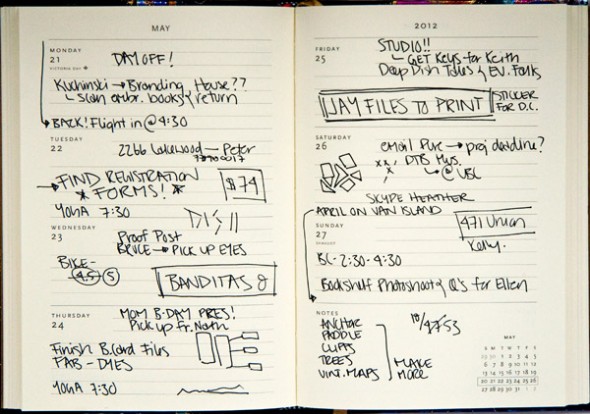 MAY
MONDAY
21
VICTORIA DAY
DAY OFF!
Kuchinski → Branding House??
scan embr. books & return
BACK! Flight in @ 4:30
TUESDAY
22
2266 Lakewood — Peter
FIND REGISTRATION
* FORMS! *
$74
YOGA 7:30
WEDNESDAY
23
Proof Post
BRUCE → PICK UP EYES
BIKE -
4.5 5
BANDITAS 8
THURSDAY
24
MOM B-DAY PRES!
Pick up fr. North
Finish B.Card Files
FAB - DYES
YOGA 7:30
2012
FRIDAY
25
STUDIO!!
GET Keys for Keith
Deep Dish Tales & EV. Folks
JAY FILES TO PRINT
STICKER
FOR D.C.
SATURDAY
26
email Pure → proj deadline?
xx, DTES Mys.
x @ UBC
SKYPE HEATHER
APRIL ON VAN ISLAND
SUNDAY
27
471 Union
Kelly.
BC - 2:30 - 4:30
Bookshelf Photoshoot & Q's for Ellen
NOTES
ANCHOR
PADDLE
CLIPAS
TREES
VINT. MAPS
MAKE
MORE
MAY
S M T W T F S
29 30 1 2 3 4 5
6 7 8 9 10 11 12
13 14 15 16 17 18 19
20 21 22 23 24 25 26
27 28 29 30 31 1 2